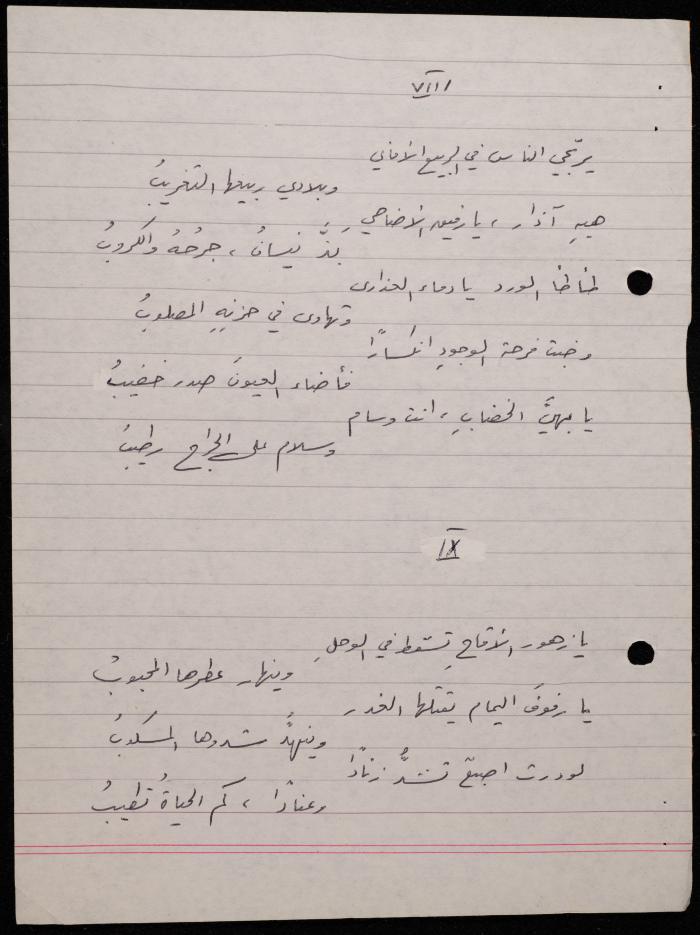 VIII
يرتجي الناس في الربيع الأماني
وبلادي ربيعها التغريبُ
هيهِ آذار، يا رفيق الأضاحي
بذَّ نيسانُ، جرحُهُ والكروبُ
طأطأ الورد يا دماء العذارى
وتهادى في حزنِهِ المصلوبُ
وخبت فرحة الوجودِ انكسارًا
فأضاء العيونَ صدر خضيبُ
يا بهيَّ الخضابِ، انت وسام
وسلام على الجراح رطيبُ
IX
يا زهور الأقاحِ تسقط في الوحلِ
وينهار عطرها المحبوبُ
يا رفوفَ اليمام يقتلها الغدر
وينهدُّ شدوها المسكوبُ
لو درت اصبعٌ تشدُّ زنادًا
وعنادًا، كم الحياةُ تطيبُ